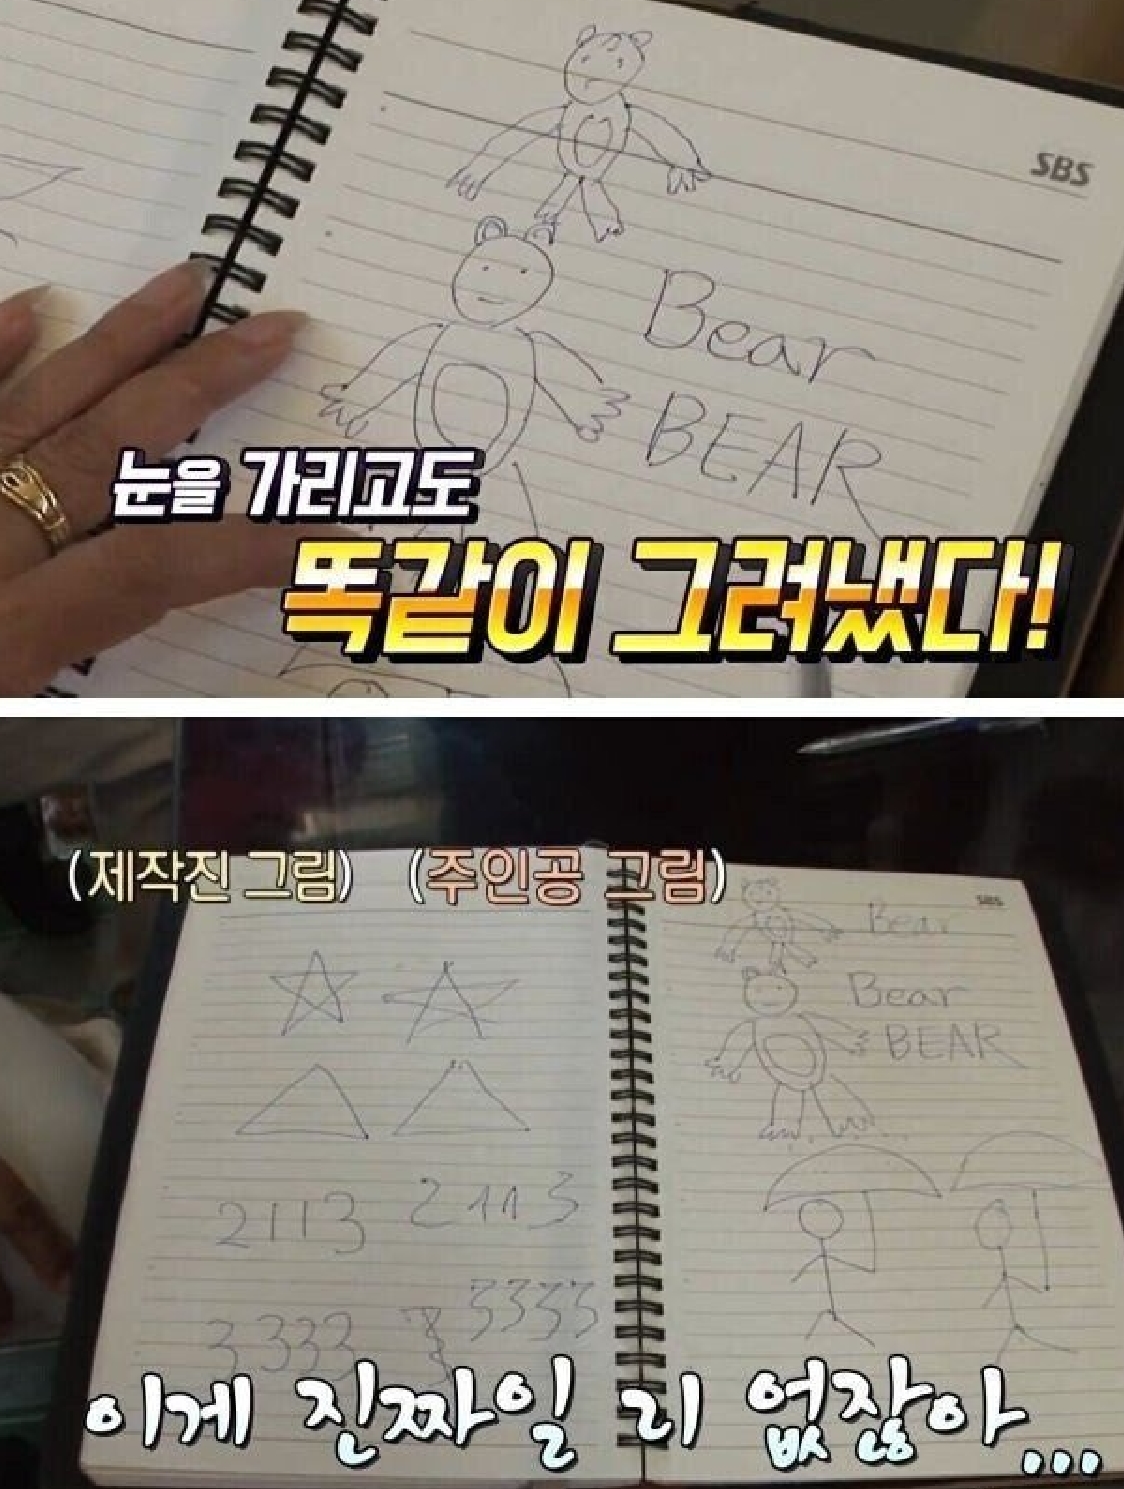 SBS
Bear
BEAR
눈을 가리고도
똑같이 그려냈다!
(제작진 그림) (주인공 그림)
SBS
Bear
Bear
BEAR
2113 2113
3333 3333
이게 진짜일 리 없잖아...